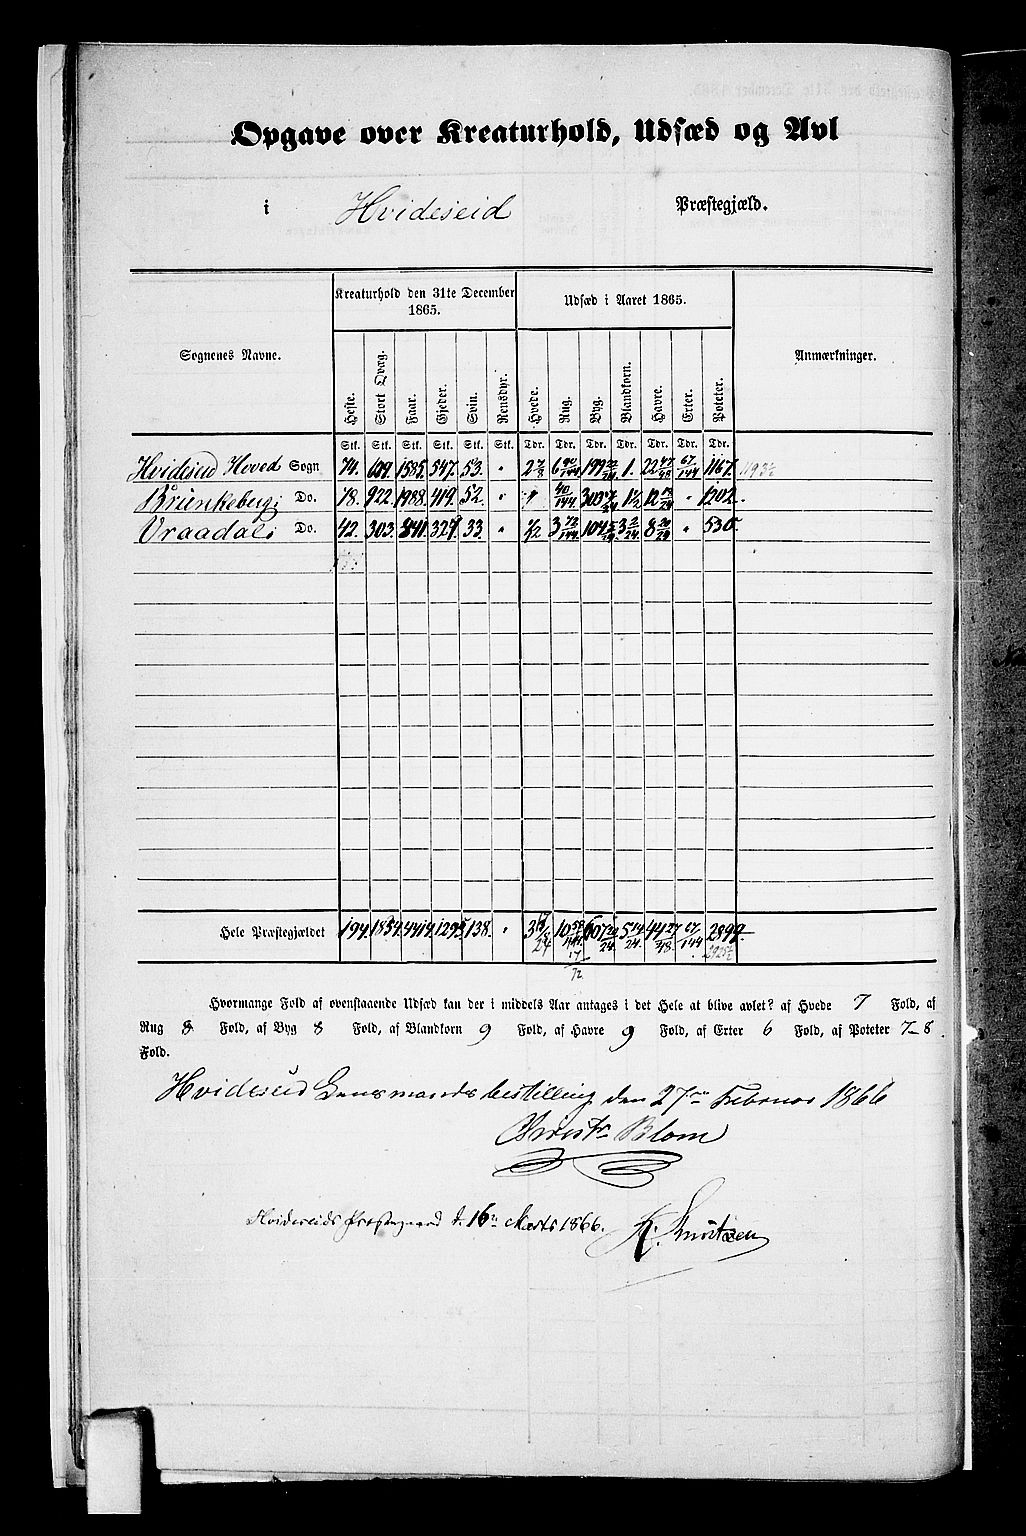 Opgave over Kreaturhold, Udsæd og Avl
i Hvideseid Præstegjæld.
Kreaturhold den 31te December 1865. Udsæd i Aaret 1865.
Sognenes Navne. Anmærkninger.
Heste. Stort Qvæg. Faar. Gjeder. Svin. Rensdyr. Hvede. Rug. Byg. Blandkorn. Havre. Erter. Poteter.
Stk. Stk. Stk. Stk. Stk. Stk. Tdr. Tdr. Tdr. Tdr. Tdr. Tdr. Tdr.
Hvideseid Hoved Sogn 74. 609. 1585. 547. 53. " 2 7/8 6 90/144 199 1. 22 47/48 67/144 1167. 1193½
Brunkeberg Do. 78. 922. 1988. 419. 52. " " 40/144. 303 1½ 12 " 1202.
Vraadal Do. 42. 303. 841. 329. 33. " ½ 3 72/144. 104 3 2/24. 8 20/24 " 530.
Hele Præstegjældet 194. 1834. 4414. 1295. 138. " 3 10 607 5 14/24. 44 27/48. 67/144. 2899
17/72.
Hvormange Fold af ovenstaaende Udsæd kan der i middels Aar antages i det Hele at blive avlet? af Hvede 7 Fold, af
Rug 8 Fold, af Byg 8 Fold, af Blandkorn 9 Fold, af Havre 9 Fold, af Erter 6 Fold, af Poteter 7-8.
Fold.
Hvideseid Lensmandsbestilling den 27de Februar 1866
Christ. Blom
Hvideseids Præstegaard d. 16de Marts 1866. K. Knutzen